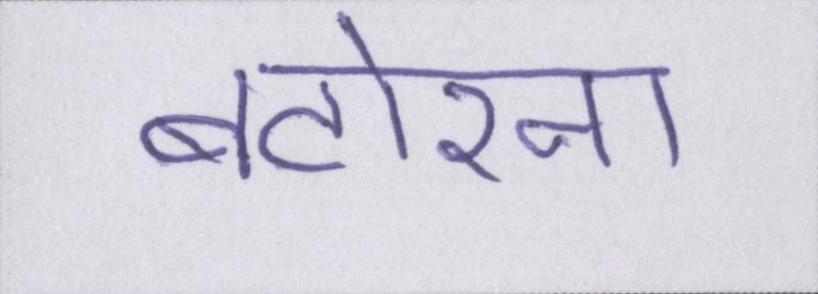 बटोरना